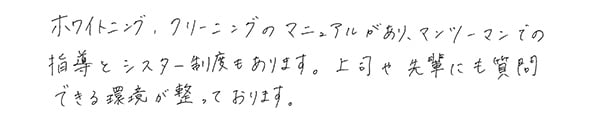 ホワイトニング、クリーニングのマニュアルがあり、マンツーマンでの
指導とシスター制度もあります。上司や先輩にも質問
できる環境が整っております。